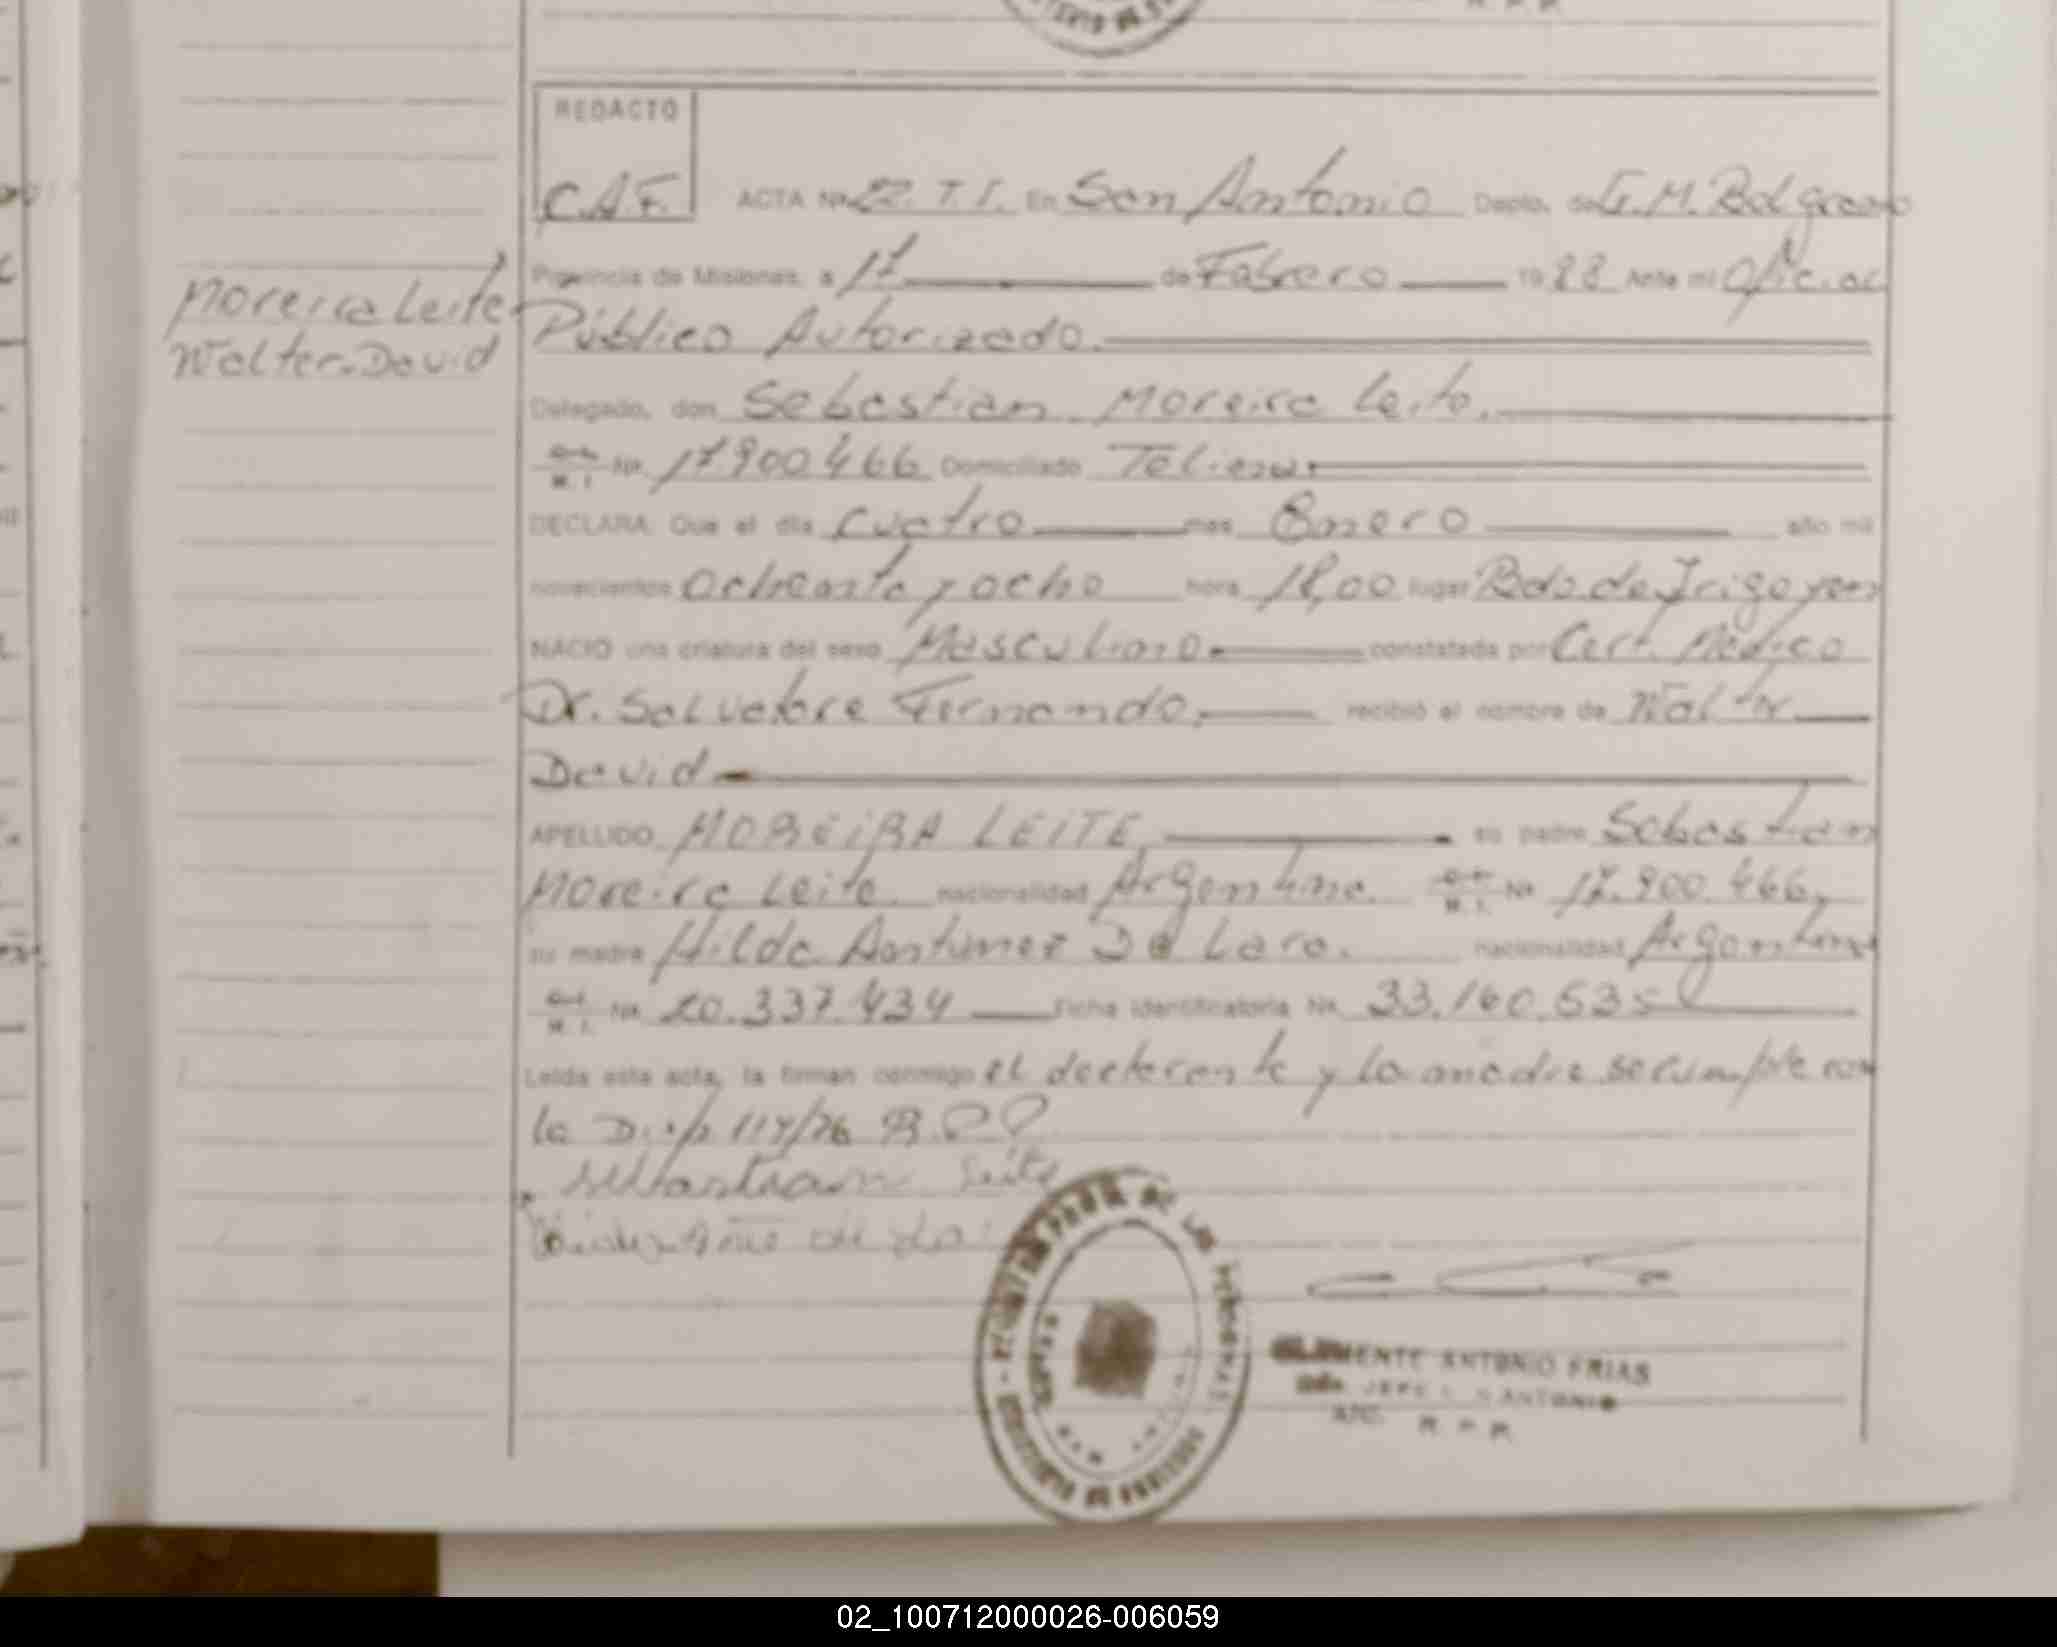 REDACTO
C.A.F.
ACTA Nº 22. T. I. En San Antonio Depto. de G.M. Belgrano
Provincia de Misiones, a 17 de Febrero 1988 Ante mi Oficial
Moreira Leite
Walter David
Público Autorizado.
Delegado, don Sebastian Moreira Leite.
M. I. Nº 17900466 Domiciliado
DECLARA: Que el día cuatro mes Enero año mil
novecientos ochenta y ocho hora 18,00 lugar Bdo. de Irigoyen
NACIO una criatura del sexo Masculino constatada por Cert. Médico
Dr. Salvatore Fernando, recibió el nombre de Walter
David
APELLIDO MOREIRA LEITE su padre Sebastian
Moreira Leite nacionalidad Argentina. M. I. Nº 17.900.466,
su madre Hilda Antunez De Lara. nacionalidad Argentina
M. I. Nº 20.337.434 Ficha Identificatoria Nº 33.160.535
Leída esta acta, la firman conmigo el declarante y la madre se cumple con
la Disp 114/76 R.P.P
Sebastian Leite
REGISTRO PROV. DE LAS PERSONAS
SAN ANTONIO
CLEMENTE ANTONIO FRIAS
JEFE ANTONIO
R. P. P.
02_100712000026-006059